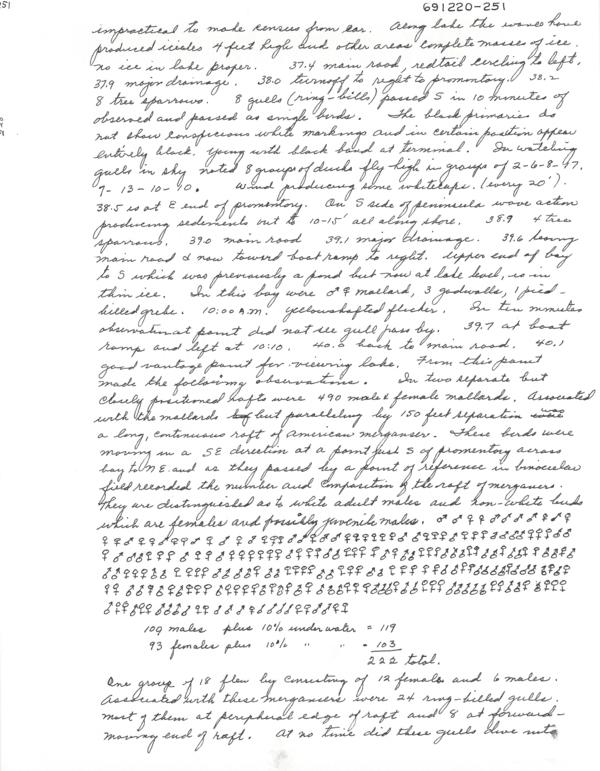 691220-251
impractical to make census from car. Along lake the waves have
produced icicles 4 feet high and other areas complete masses of ice.
no ice in lake proper. 37.4 main road, redtail circling to left,
37.9 major drainage. 38.0 turnoff to right to promontory. 38.2
8 tree sparrows. 8 gulls (ring-bills) passed S in 10 minutes of
observed and passed as single birds. The black primaries do
not show conspicuous white markings and in certain position appear
entirely black. Young with black band at terminal. In watching
gulls in sky noted 8 groups of ducks fly high in groups of 2-6-8-47,
9-13-10-10. Wind producing some whitecaps. (every 20').
38.5 is at E end of promontory. On S side of peninsula wave action
producing sediments out to 10-15' all along shore. 38.9 4 tree
sparrows. 39.0 main road 39.1 major drainage. 39.6 leaving
main road & now toward boat ramp to right. Upper end of bay
to S which was previously a pond but now at lake level, is in
thin ice. In this bay were ♂ ♀ mallard, 3 gadwalls, 1 pied-
billed grebe. 10:00 A.M. yellowshafted flicker. In ten minutes
observation at point did not see gull pass by. 39.7 at boat
ramp and left at 10:10. 40.0 back to main road. 40.1
good vantage point for viewing lake. From this point
made the following observations. In two separate but
closely positioned rafts were 490 male & female mallards. Associated
with the mallards but paralleling by 150 feet separation
a long, continuous raft of American merganser. These birds were
moving in a SE direction at a point just S of promontory across
bay to NE and as they passed by a point of reference in binocular
field recorded the number and composition of the raft of mergansers.
They are distinguished as to white adult males and non-white birds
which are females and possibly juvenile males.
109 males plus 10% underwater = 119
93 females plus 10% " " = 103
222 total.
One group of 18 flew by consisting of 12 females and 6 males.
Associated with these mergansers were 24 ring-billed gulls.
most of them at peripheral edge of raft and 8 at forward-
moving end of raft. At no time did these gulls dive into